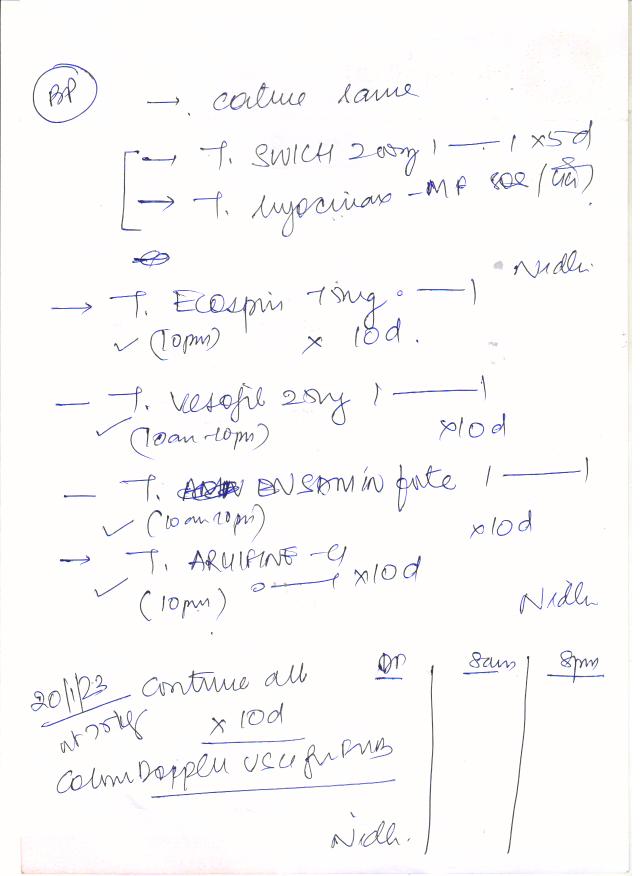 BP
→ continue same
→ T. SWICH 200mg 1 — 1 x5d
→ T. Myocinax-MR SOS
Nidhi
→ T. Ecosprin 75mg 0 — 1
✓ (10pm) x 10d.
— T. Vesofil 25mg 1 — 1
✓ (10am-10pm) x10d
— T. ENSAMIN forte 1 — 1
✓ (10am-10pm) x10d
→ T. ARUIFINE-G
✓ (10pm) 0 — 1 x10d
Nidhi
20/1/23 Continue all
wt 75kg x 10d
Colour Doppler USG for FWB
Nidhi.
BP 8am 8pm